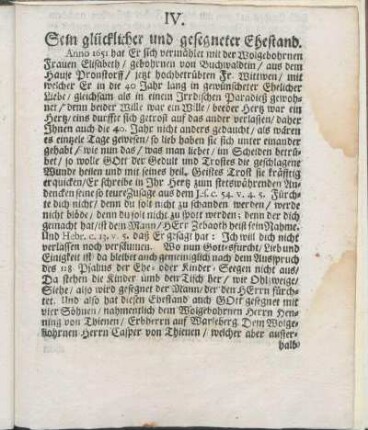 IV.
Sein glücklicher und gesegneter Ehestand.
Anno 1651 hat Er sich vermählet mit der Wolgebohrnen
Frauen Elisabeth / gebohrnen von Buchwaldtin / aus dem
Hause Pronstorff / jetzt hochbetrübten Fr. Wittwen / mit
welcher Er in die 40 Jahr lang in gewünscheter Ehelicher
Liebe / gleichsam als in einem Irrdischen Paradieß gewoh-
net / denn beider Wille war ein Wille / beeder Hertz war ein
Hertz / eins durffte sich getrost auf das ander verlassen / daher
Ihnen auch die 40. Jahr nicht anders gedaucht / als wären
es eintzele Tage gewesen / so lieb haben sie sich unter einander
gehabt / wie nun das / was man liebet / im Scheiden betrü-
bet / so wolle GOtt der Gedult und Trostes die geschlagene
Wunde heilen und mit seines heil. Geistes Trost sie kräfftig
erquicken / Er schreibe in Ihr Hertz zum stetswährenden An-
dencken jene so teure Zusage aus dem Jes. c. 54. v. 4. 5. Fürch-
te dich nicht / denn du solt nicht zu schanden werden / werde
nicht blöde / denn du solt nicht zu spott werden; denn der dich
gemacht hat / ist dein Mann / HErr Zebaoth heist sein Nahme.
Und Hebr. c. 13. v. 5. daß Er gesagt hat: Ich will dich nicht
verlassen noch versäumen. Wo nun Gottesfurcht / Lieb und
Einigkeit ist / da bleibet auch gemeiniglich nach dem Ausspruch
des 128 Psalms der Ehe- oder Kinder-Seegen nicht aus /
Da stehen die Kinder umb den Tisch her / wie Ohlzweige /
Siehe / also wird gesegnet der Mann / der den HErrn fürch-
tet. Und also hat diesen Ehestand auch GOtt gesegnet mit
vier Söhnen / nahmentlich dem Wolgebohrnen Herrn Hen-
ning von Thienen / Erbherrn auf Warleberg. Dem Wolge-
bohrnen Herrn Casper von Thienen / welcher aber ausser-
halb